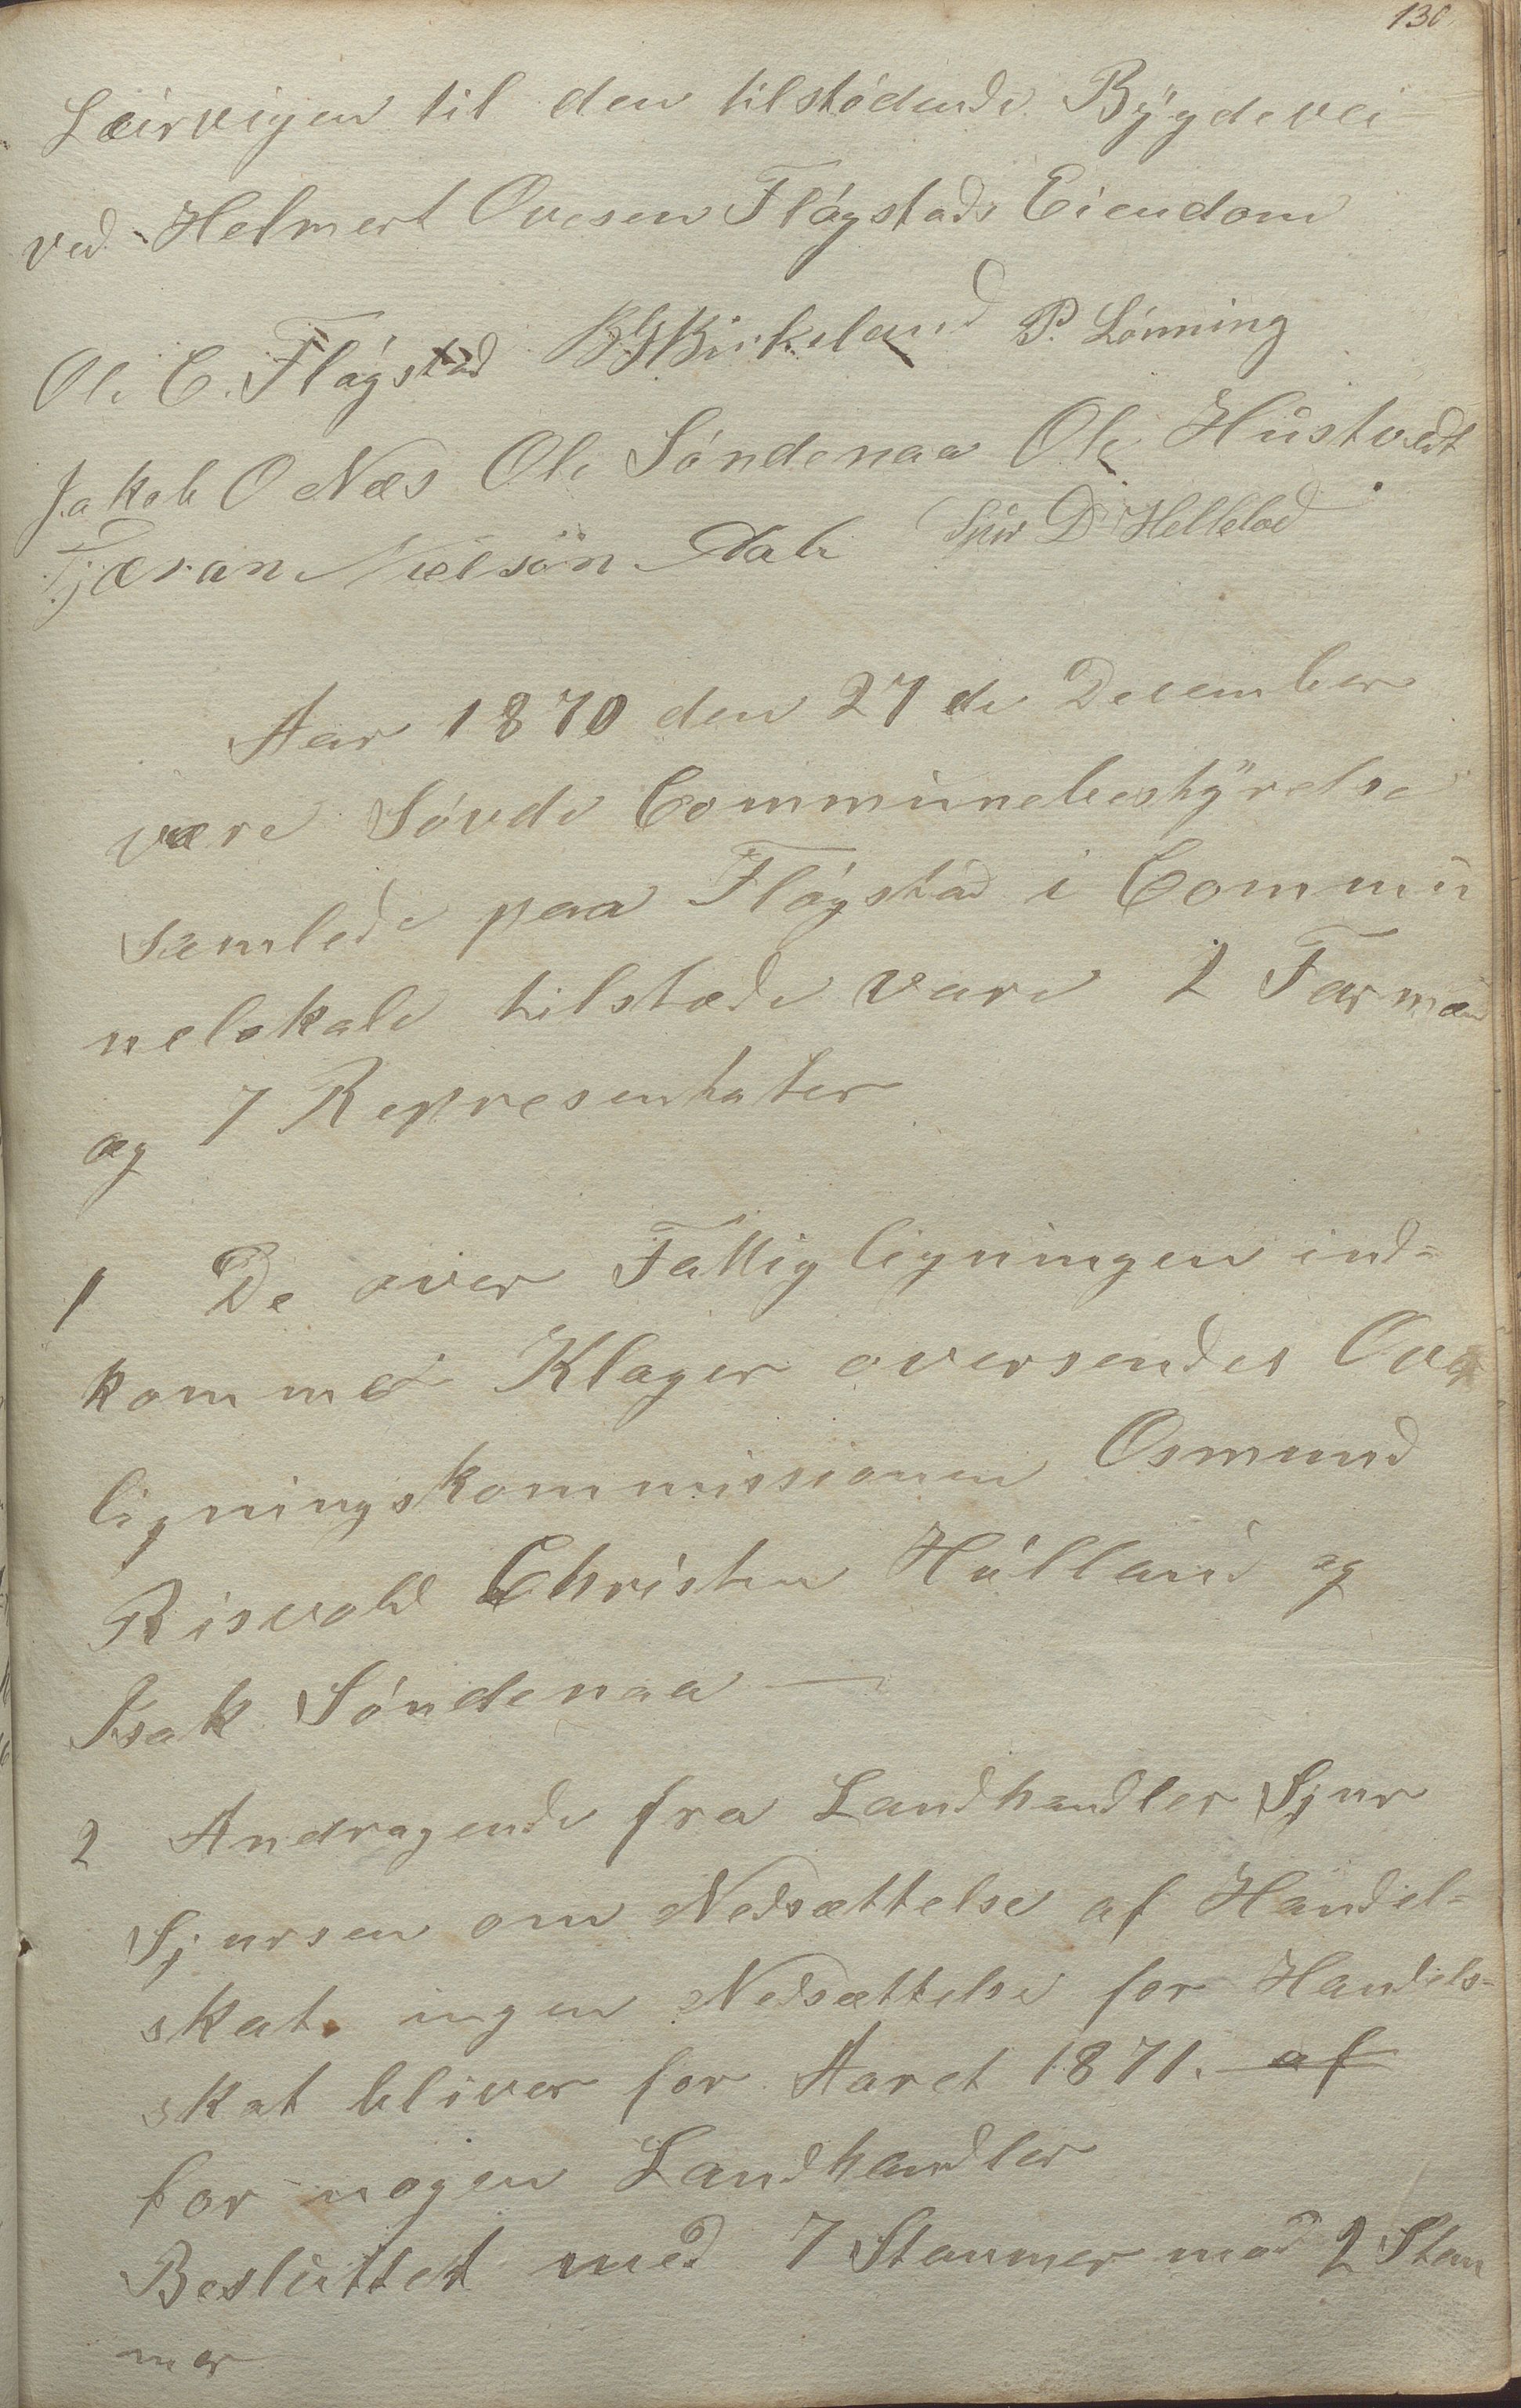 130
Leirvigen til den tilstødende Bÿgdevei
ved Helmert Ovesen Fløgstads Eiendom
Ole C. Fløgstad BGBirkeland P. Lønning
Jakob O Næs Ole Søndenaa Ole Hustvedt
Tjæran Nielsön Dale Sjur D Helleland
Aar 1870 den 27de December
være Søvde Communebestÿrelse
samlede paa Fløgstad i Commu
nelokale tilstæde vare 2 Formæn
og 7 Representater
1 De over Fattigligningen ind=
komme Klager oversendes Over
ligningskommissionen Osmund
Risvold Christen Hølland og
Isak Søndenaa —
2 Andragende fra Landhandler Sjur
Sjursen om Nedsættelse af Handel=
skat. ingen Nedsættelse for Handels=
skat bliver for Aaret 1871. af
for nogen Landhandler
Besluttet med 7 Stemmer mod 2 Stem
mer